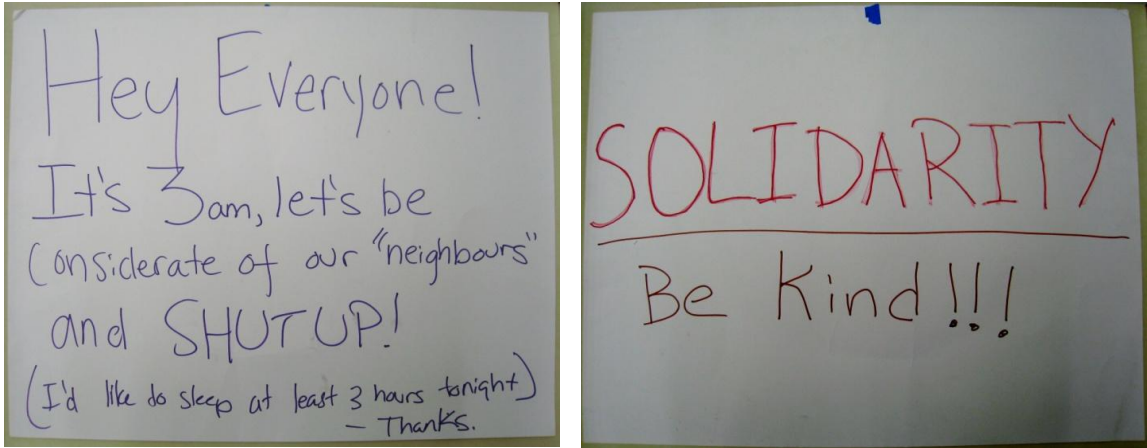 Hey Everyone!
It's 3am, let's be
Considerate of our "neighbours"
and SHUT UP!
(I'd like do sleep at least 3 hours tonight)
– Thanks.
SOLIDARITY
Be Kind!!!